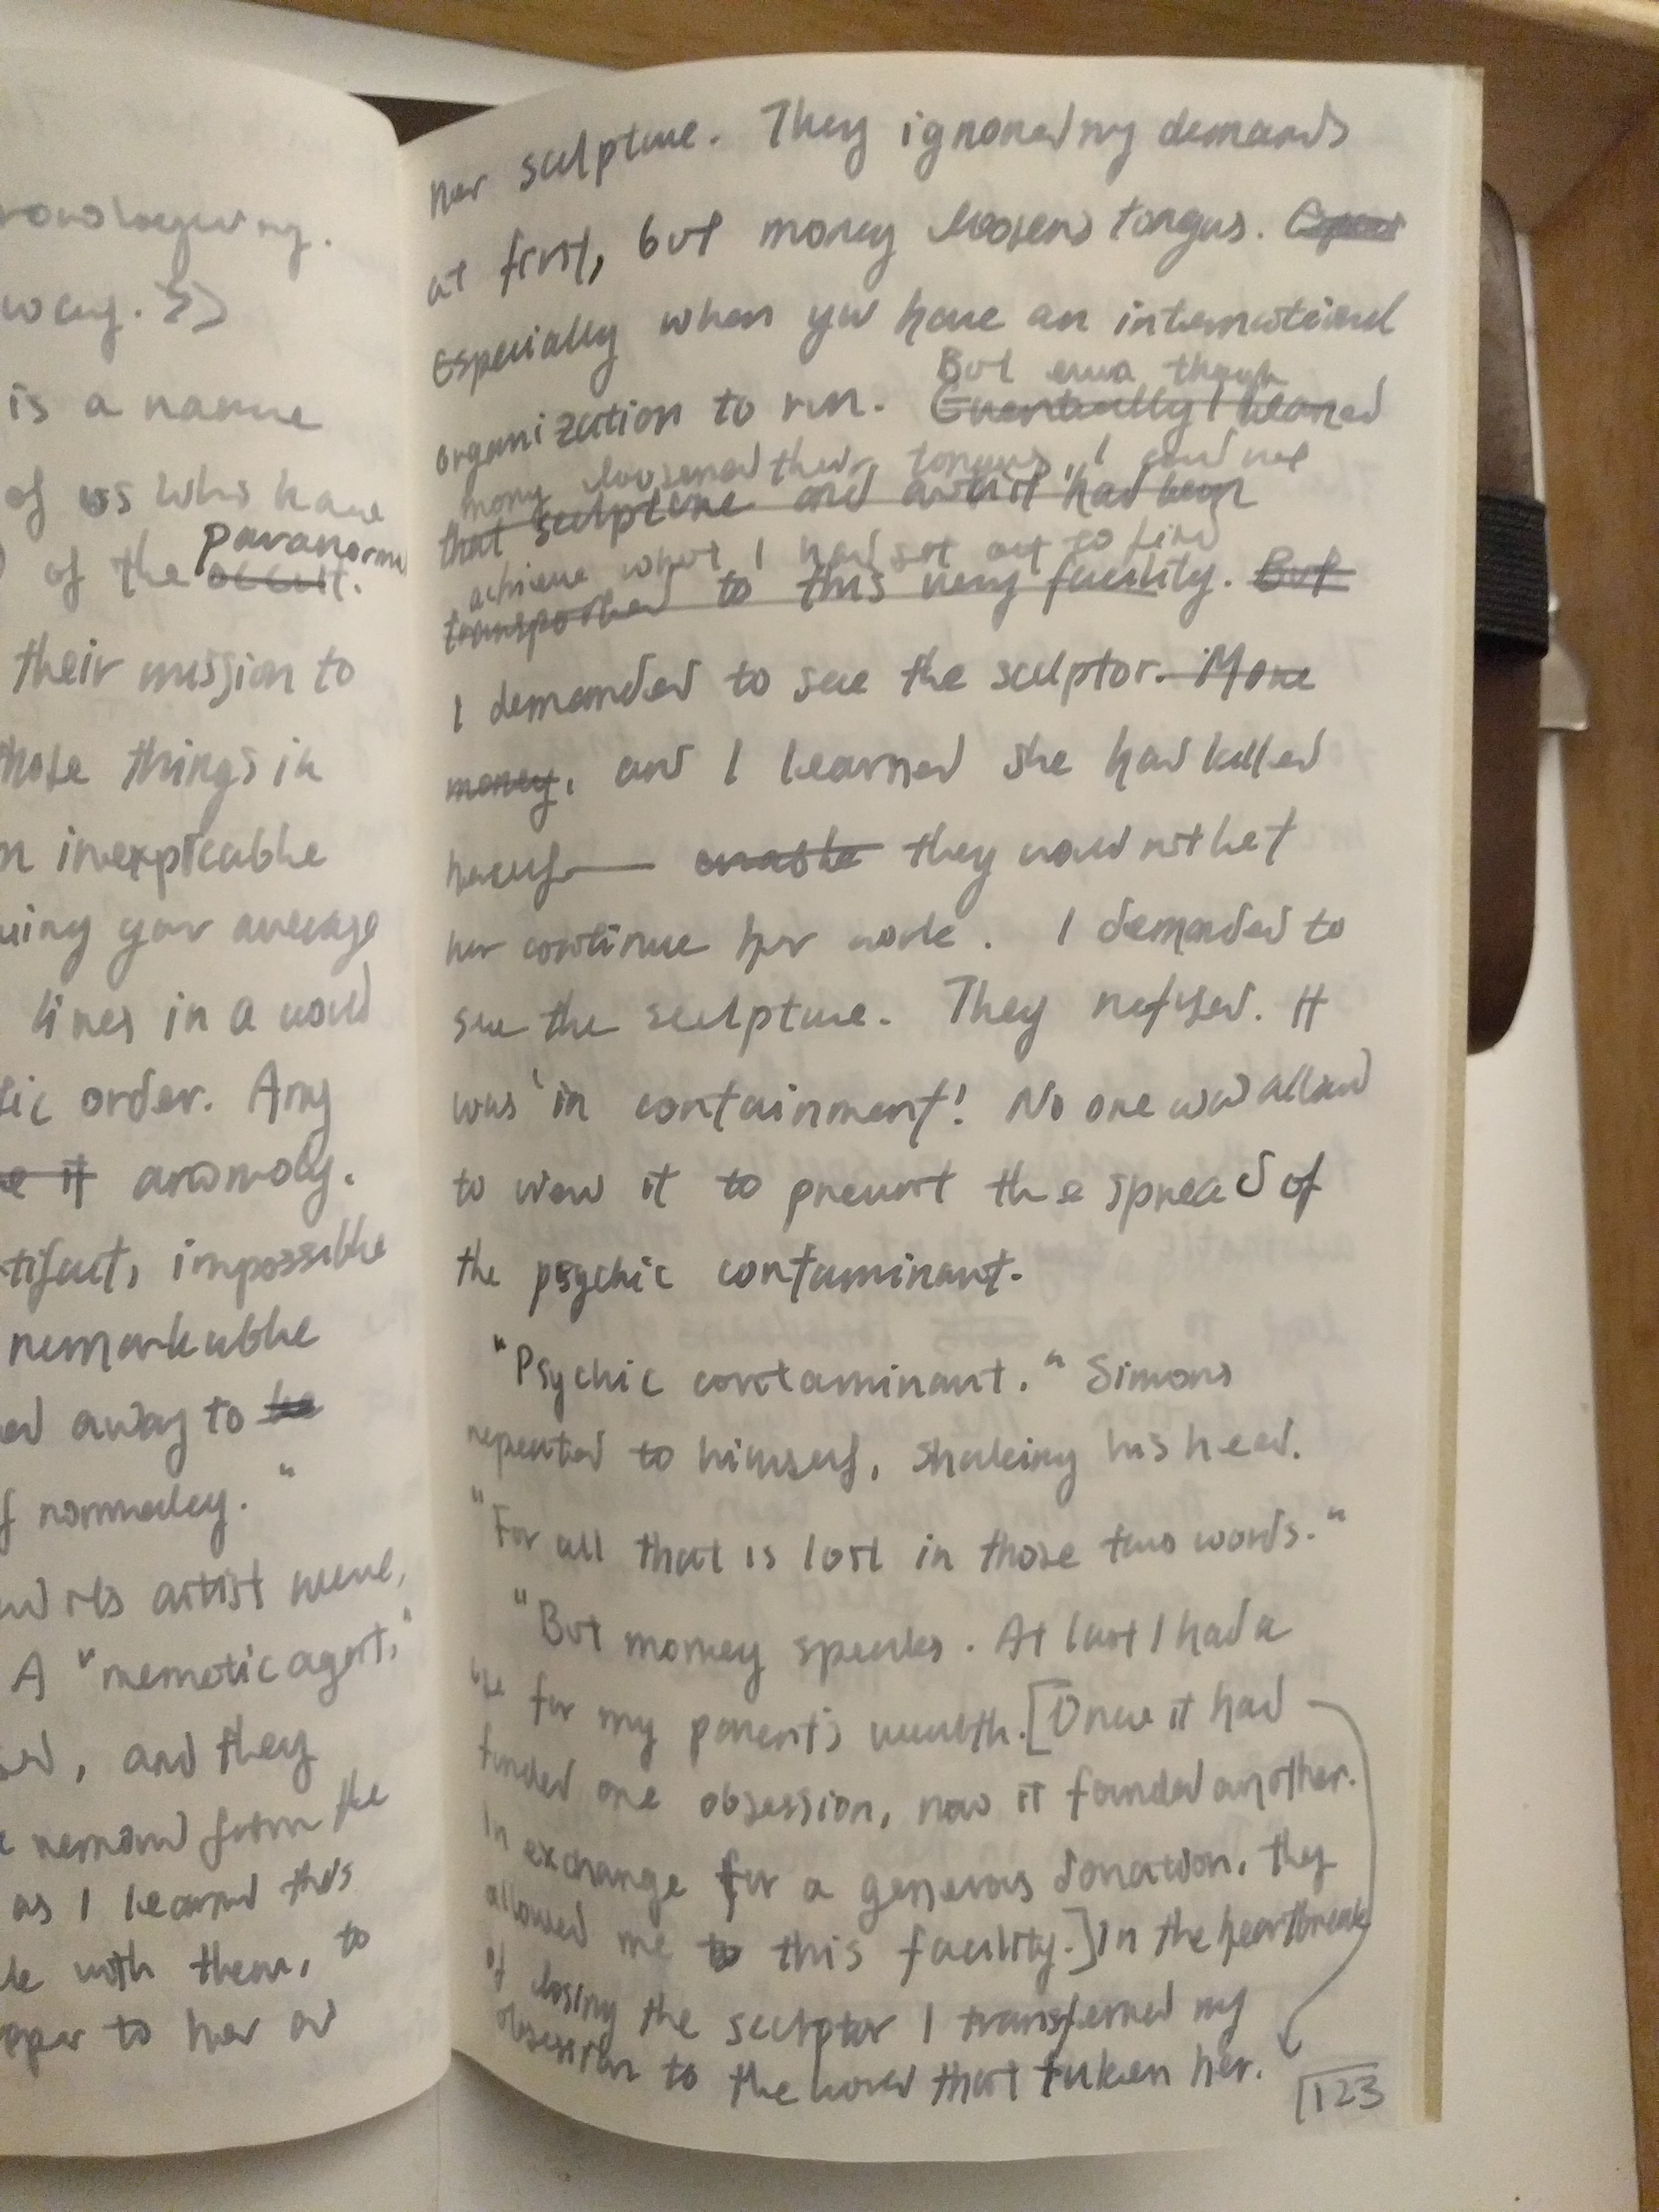 is a name
of us who have
paranormal
of the occult.
their mission to
those things in
inexplicable
your average
lines in a world
order. Any
it anomoly.
impossible
remarkable
away to be
normalcy."
its artist were,
A "memetic agent,"
, and they
the
as I learned this
with them, to
to her or
her sculpture. They ignored my demands
at first, but money loosens tongues.
Especially when you have an international
But even though
organization to run. Eventually I learned
money loosened their tongues, I could not
that sculpture and artist had been
achieve what I had set out to find
transported to this very facility. But
I demanded to see the sculptor. More
money, and I learned she had killed
herself— unable they would not let
her continue her work. I demanded to
see the sculpture. They refused. It
was in containment! No one was allowed
to view it to prevent the spread of
the psychic contaminant.
"Psychic contaminant." Simons
repeated to himself, shaking his head.
"For all that is lost in those two words."
"But money speaks. At last I had a
use for my parent's wealth. [Once it had
funded one obsession, now it founded another.
In exchange for a generous donation, they
allowed me to this facility.] In the heartbreak
of losing the sculptor I transferred my
obsession to the world that taken her.
123